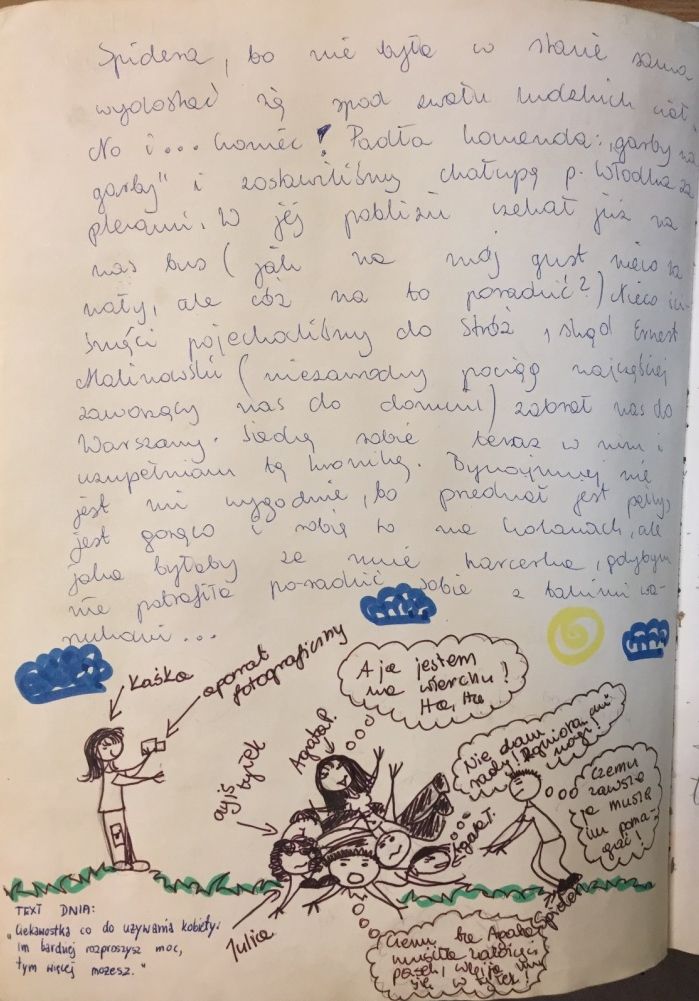 Spidera, bo nie była w stanie sama
wydostać się spod zwału ludzkich ciał.
No i... koniec! Padła komenda: „garby na
garby" i zostawiliśmy chałupę p. Włodka za
plecami. W jej pobliżu czekał już na
nas bus (jak na mój gust nieco za
mały, ale cóż na to poradzić?) Nieco ści-
śnięci pojechaliśmy do Stróż, skąd Ernest
Malinowski (niezawodny pociąg najczęściej
zawożący nas do domu) zabrał nas do
Warszawy. Siedzę sobie teraz w nim i
uzupełniam tą kronikę. Bynajmniej nie
jest mi wygodnie, bo przedział jest pełny,
jest gorąco i robię to na kolanach, ale
jaka byłaby ze mnie harcerka, gdybym
nie potrafiła poradzić sobie z takimi wa-
runkami...
Kaśka
aparat
fotograficzny
A ja jestem
na wierchu!
Ha, Ha
Agata P.
czyjś
tyłek
Nie dam
rady! Ramiona, ani
nogi!
Czemu
zawsze
ja muszę
im poma-
gać!
Agata T.
Spider
Julia
Czemu ta Agata
musiała założyć
pasek, wbija mi
się w tyłek!
TEXT DNIA:
„Ciekawostka co do używania kobiety:
im bardziej rozproszysz moc,
tym więcej możesz."